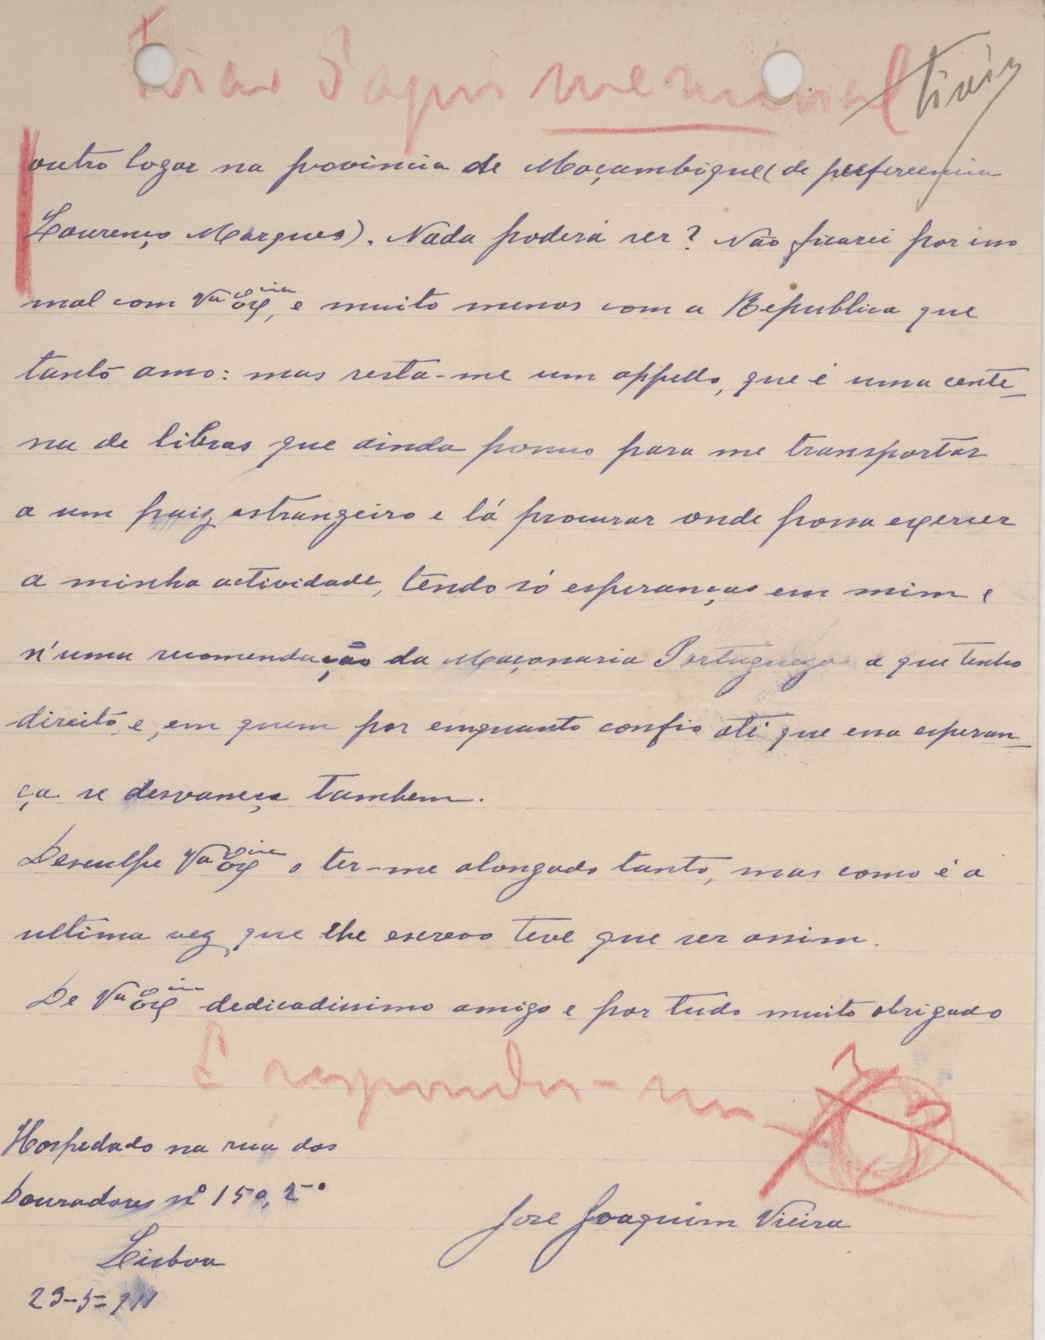 outro logar na provincia de Moçambique (de preferencia
Lourenço Marques). Nada poderá ser? Não ficarei por isso
mal com Vª Exª, e muito menos com a Republica que
tanto amo: mas resta-me um appello, que é uma cente-
na de libras que ainda possuo para me transportar
a um paiz estrangeiro e lá procurar onde possa exercer
a minha actividade, tendo só esperanças em mim e
n'uma recomendação da Maçonaria Portugueza a que tenho
direito e, em quem por emquanto confio até que essa esperan-
ça se desvaneça tambem.
Desculpe Vª Exª o ter-me alongado tanto, mas como é a
ultima vez que lhe escrevo teve que ser assim.
De Vª Exª dedicadissimo amigo e por tudo muito obrigado
Hospedado na rua dos
Douradores nº 150, 2º
José Joaquim Vieira
Lisboa
23-5-911